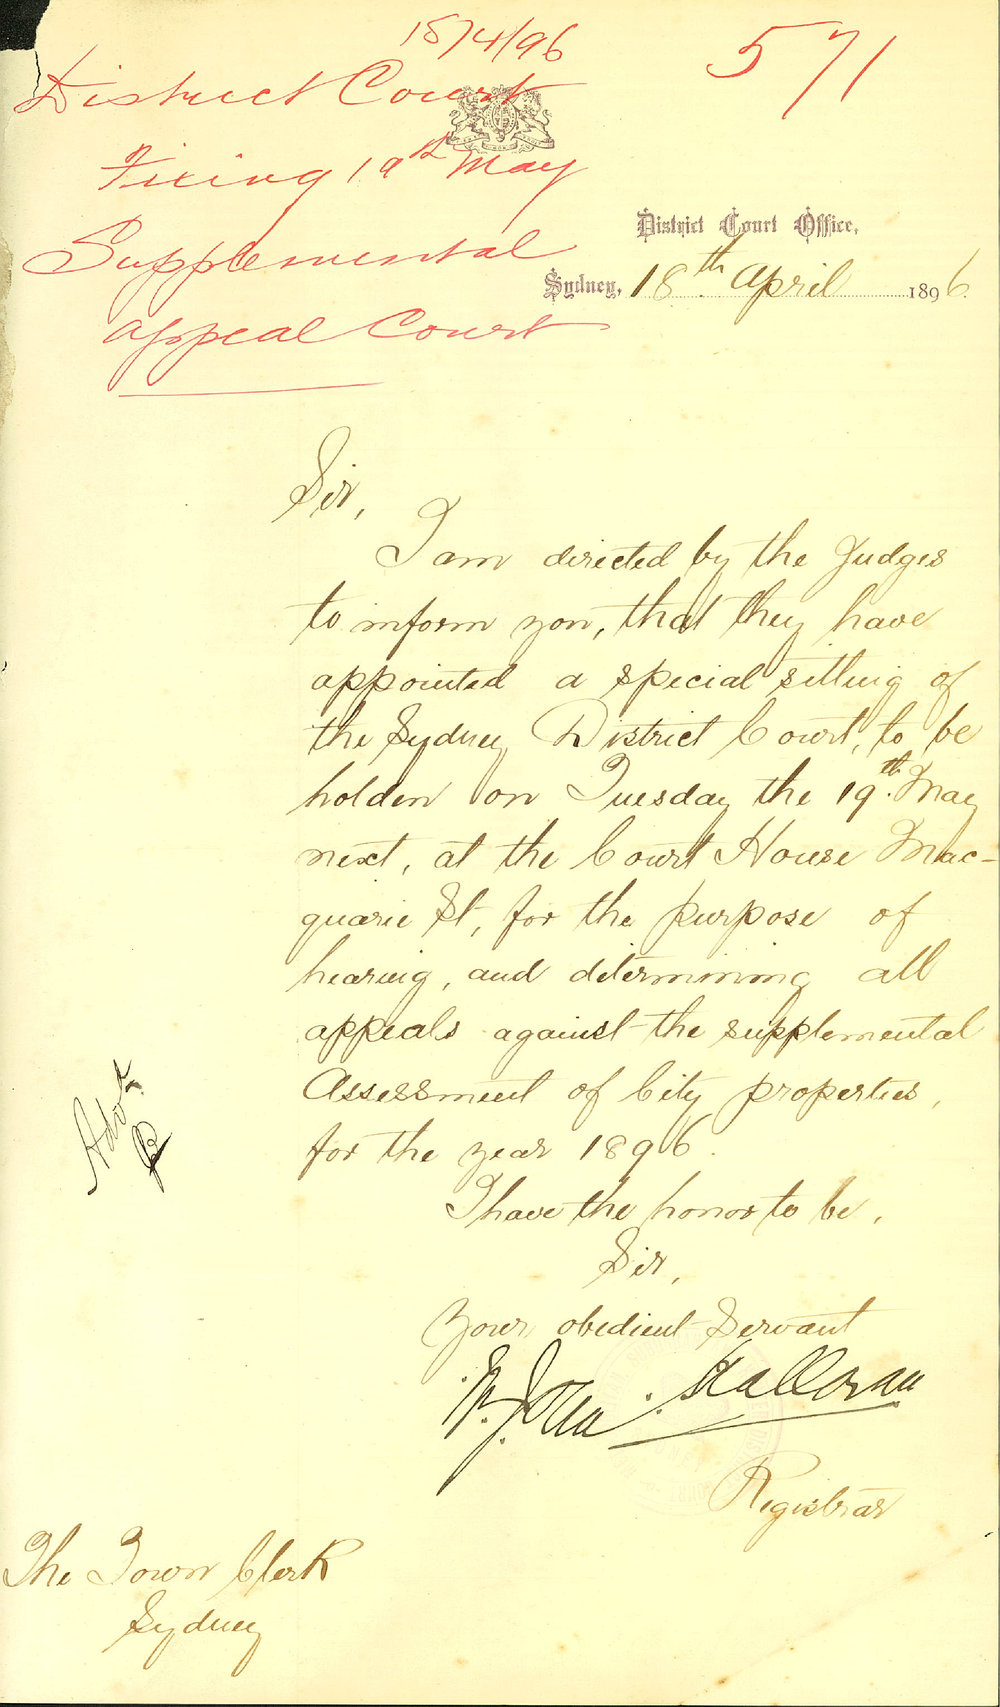 18/4/96
571
District Court
Fixing 19th May
Supplemental
Appeal Court
District Court Office,
Sydney, 18th April 1896
Sir,
I am directed by the Judges
to inform you, that they have
appointed a special sitting of
the Sydney District Court, to be
holden on Tuesday the 19th. May
next, at the Court House Mac-
quarie St, for the purpose of
hearing, and determining all
appeals against the supplemental
Assessment of City properties,
for the year 1896.
I have the honor to be,
Sir,
Your obedient Servant
Halloran
Registrar
The Town Clerk
Sydney